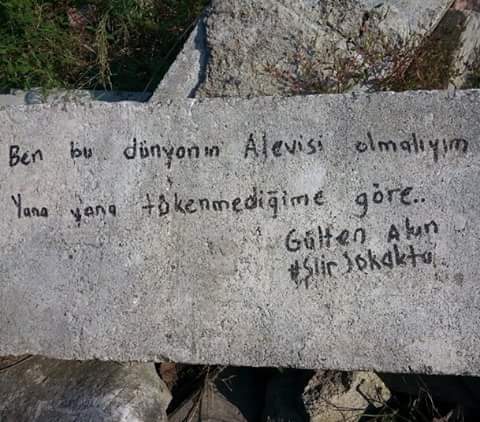 Ben bu dünyanın Alevisi olmalıyım
Yana yana tükenmediğime göre..
Gülten Akın
#ŞiirSokakta